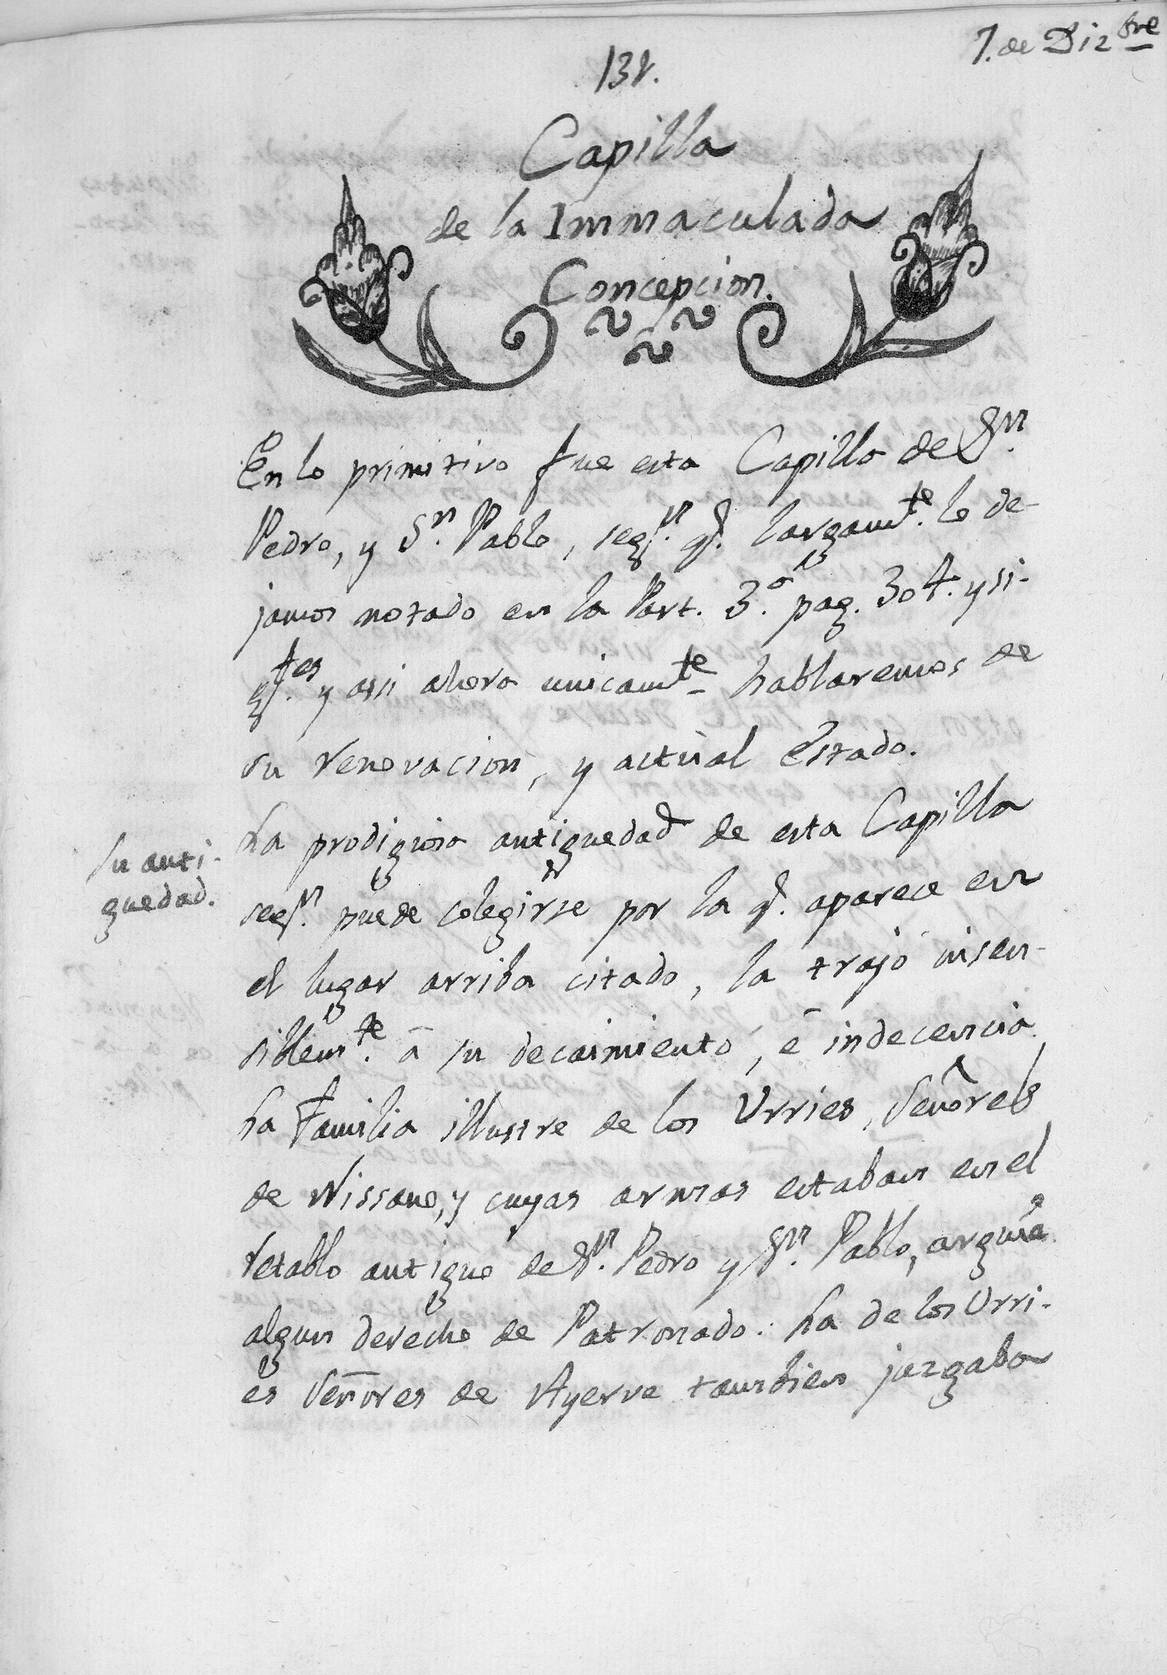 7. de Dizbre
138.
Capilla
de la Immaculada
Concepcion.
En lo primitivo fue esta Capilla de Sn.
Pedro, y Sn. Pablo, segn. q. largamte. lo de-
jamos notado en la Part. 3.a pag. 304. y si-
gtes. y assi ahora unicamte hablaremos de
su renovacion, y actual Estado.
Su anti-
guedad.
La prodigiosa antiguedad de esta Capilla
segn. puede colegirse por la q. aparece en
el lugar arriba citado, la trajo insen-
siblemte. â su decaimiento, ê indecencia.
La Familia illustre de los Urries, Señores
de Nissano, y cuyas armas estaban en el
retablo antiguo de Sn. Pedro y Sn. Pablo, arguia
algun derecho de Patronado. La de los Urri-
es Señores de Ayerve tambien juzgaba